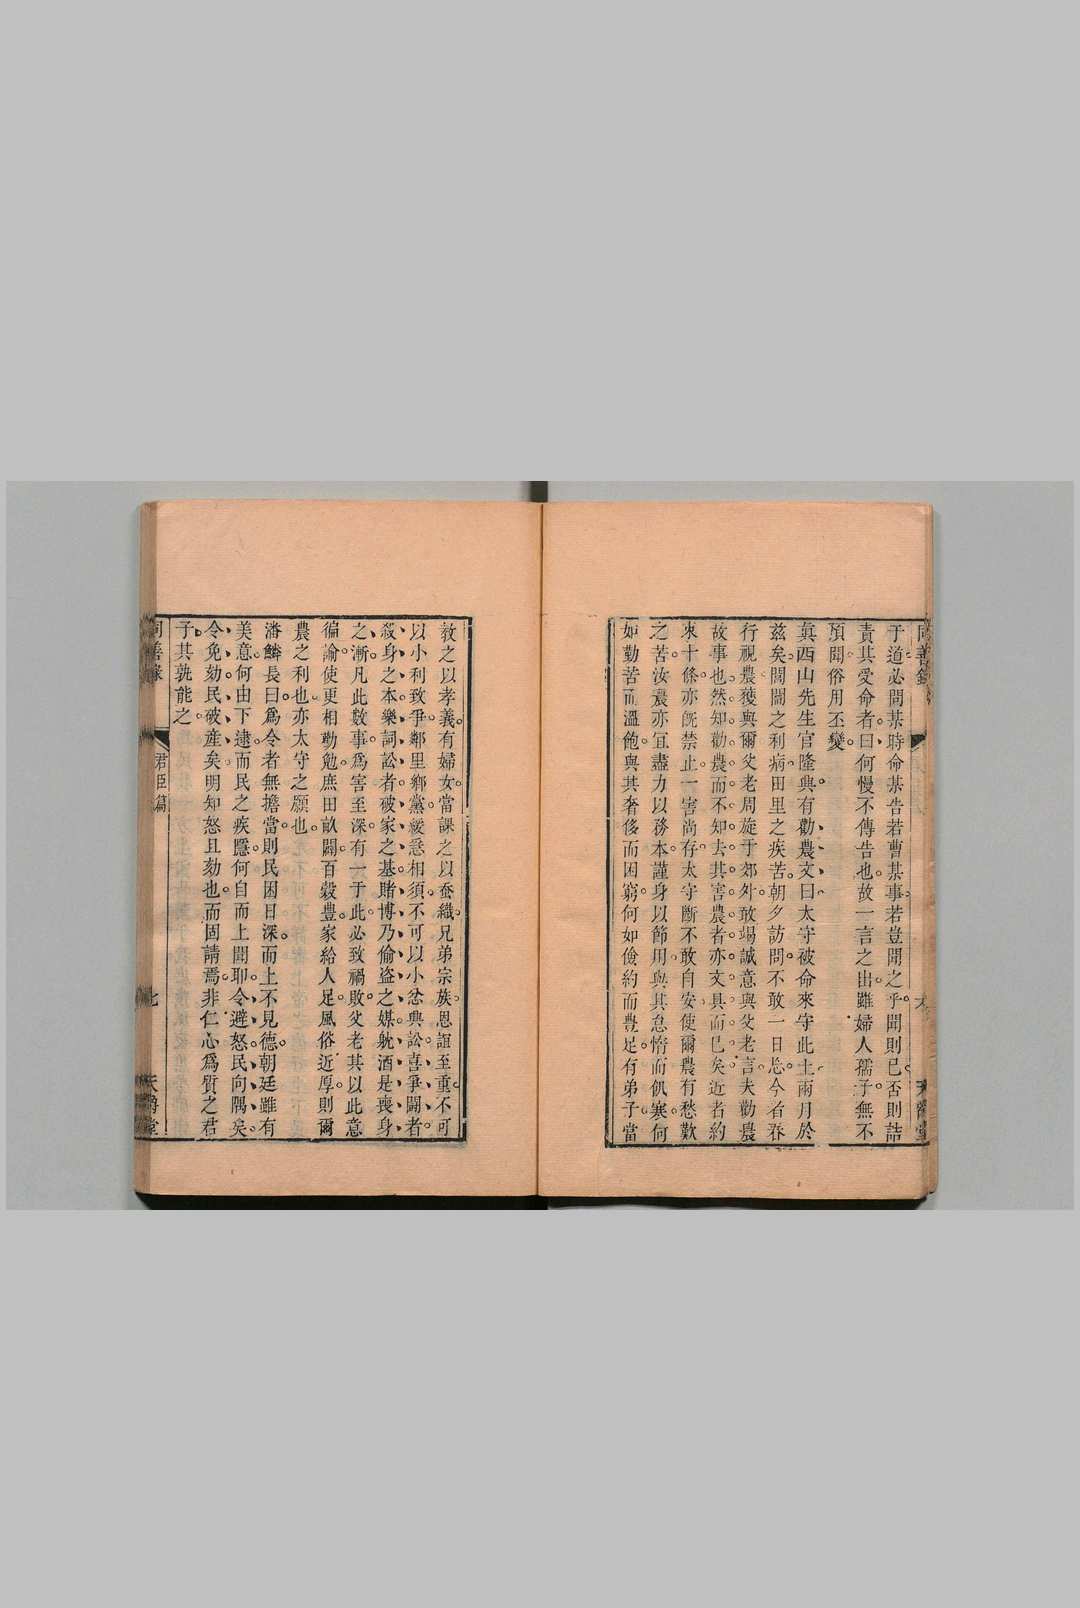 同善錄
六
天爵堂
于道必問某時命某告若曹某事若豈聞之乎聞則已否則詰
責其受命者曰何慢不傳告也故一言之出雖婦人孺子無不
預聞俗用丕變
真西山先生官隆興有勸農文曰太守被命來守此土兩月於
兹矣閭閻之利病田里之疾苦朝夕訪問不敢一日忘今者春
行視農穫與爾父老周旋于郊外敢竭誠意與父老言夫勸農
故事也然知勸農而不知去其害農者亦文具而已矣近者約
束十條亦既禁止一害尚存太守斷不敢自安使爾農有愁歎
之苦汝農亦宜盡力以務本謹身以節用與其怠惰而飢寒何
如勤苦而溫飽與其奢侈而困窮何如儉約而豊足有弟子當
教之以孝義有婦女當課之以蚕織兄弟宗族恩誼至重不可
以小利致爭鄰里鄉黨緩急相須不可以小忿興訟喜爭鬪者
殺身之本樂詞訟者破家之基賭博乃偷盜之媒躭酒是喪身
之漸凡此數事爲害至深有一于此必致禍敗父老其以此意
徧諭使更相勸勉庶田畝闢百穀豊家給人足風俗近厚則爾
農之利也亦太守之願也
潘鱗長曰爲令者無擔當則民困日深而上不見德朝廷雖有
美意何由下逮而民之疾隱何自而上聞耶令避怒民向隅矣
令免劾民破産矣明知怒且劾也而固請焉非仁心爲質之君
子其孰能之
同善錄
君臣篇
七
天爵堂